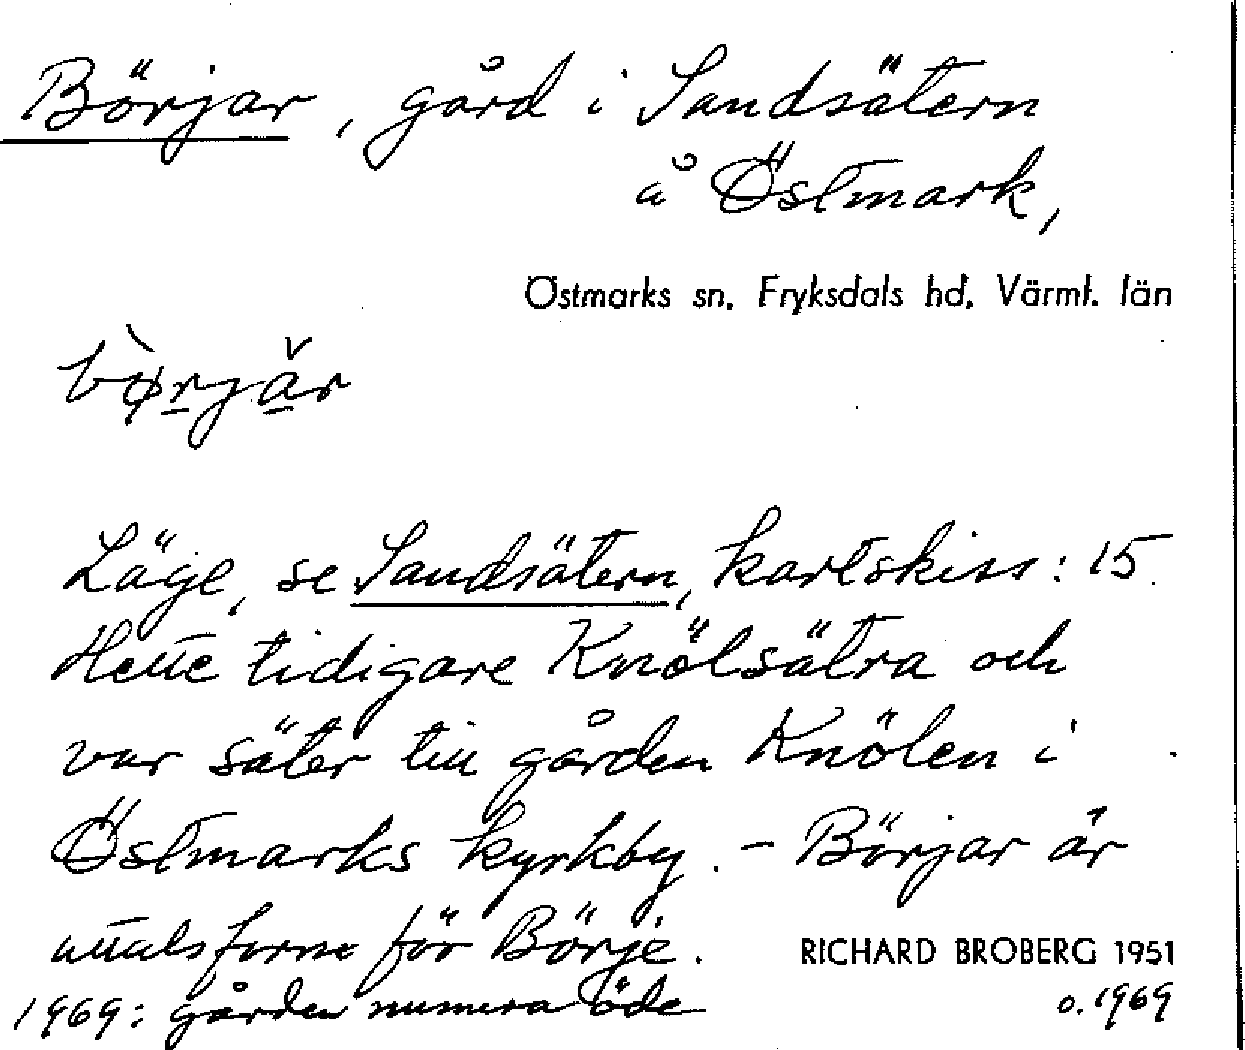 Börjar, gård i Sandsätern
å Östmark,
Östmarks sn. Fryksdals hd. Värml. län
bø̀rjăr
Läge, se Sandsätern, kartskiss: 15.
Hette tidigare Knölsätra och
var säter till gården Knölen i
Östmarks kyrkby. - Börjar är
uttalsform för Börje.
RICHARD BROBERG 1951
1969: gården numera öde
o. 1969